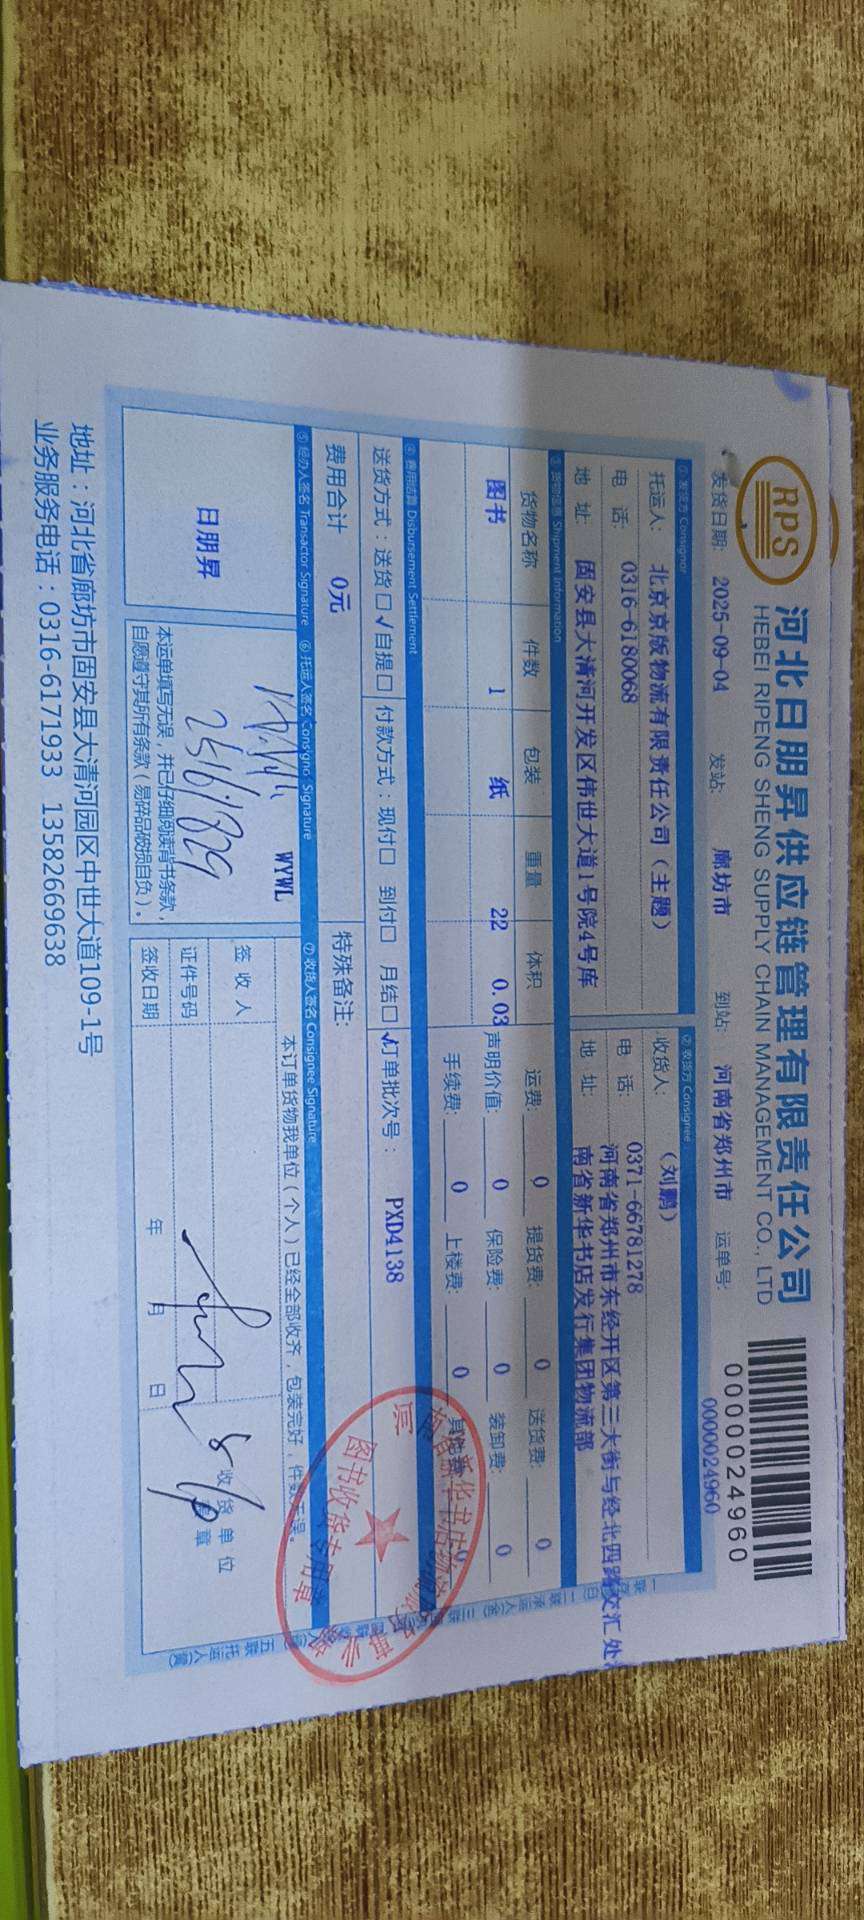 RPS
河北日朋昇供应链管理有限责任公司
HEBEI RIPENG SHENG SUPPLY CHAIN MANAGEMENT CO., LTD
0000024960
发货日期: 2025-09-04 发站: 廊坊市 到站: 河南省郑州市 运单号: 0000024960
① 发货方 Consignor ② 收货方 Consignee
托运人: 北京京版物流有限责任公司(主题) 收货人: (刘鹏)
电 话: 0316-6180068 电 话: 0371-66781278
地 址: 固安县大清河开发区伟世大道1号院4号库 地 址: 河南省郑州市东经开区第三大街与经北四路交汇处河
南省新华书店发行集团物流部
③ 货物信息 Shipment Information
货物名称 件数 包装 重量 体积 运费: 0 提货费: 0 送货费: 0
图书 1 纸 22 0.03 声明价值: 0 保险费: 0 装卸费: 0
手续费: 0 上楼费: 0 其他费: 0
④ 费用结算 Disbursement Settlement
送货方式:送货□√自提□ 付款方式:现付□ 到付□ 月结□√订单批次号: PXD4138
费用合计 0元 特殊备注:
⑤ 经办人签名 Transactor Signature ⑥ 托运人签名 Consigno Signature ⑦ 收货人签名 Consignee Signature
日朋昇
WYWL
本运单填写无误,并已仔细阅读背书条款,
自愿遵守其所有条款(易碎品破损自负)。
本订单货物我单位(个人)已经全部收齐,包装完好,件数无误。
签 收 人
证件号码
签收日期 年 月 日
收 货 单 位
盖 章
图书收货专用章
地址:河北省廊坊市固安县大清河园区中世大道109-1号
业务服务电话:0316-6171933 13582669638